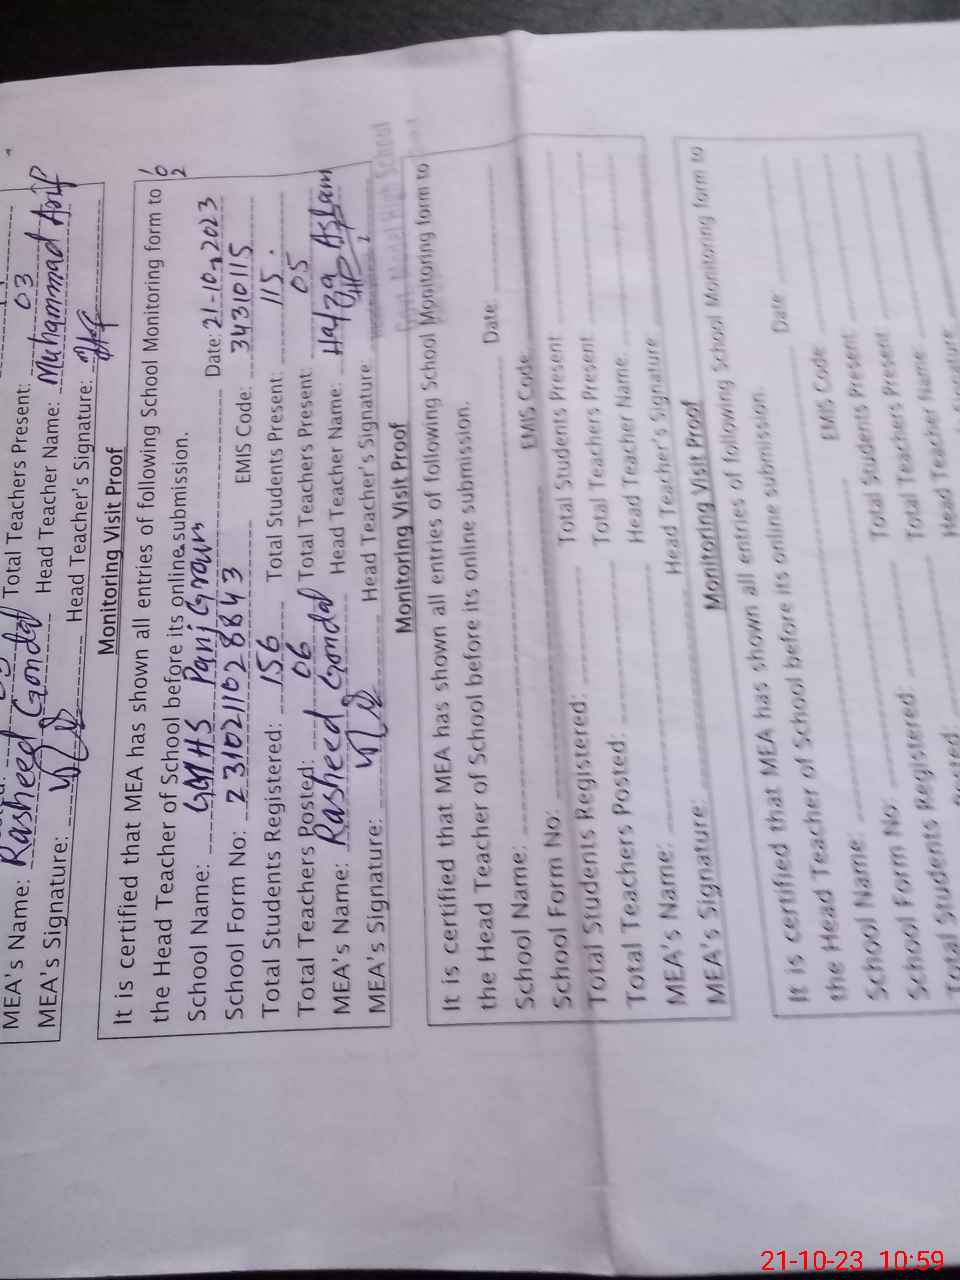 Total Teachers Present: 03
MEA's Name: Rasheed Gondal Head Teacher Name: Muhammad Arif
MEA's Signature: Head Teacher's Signature:
Monitoring Visit Proof
It is certified that MEA has shown all entries of following School Monitoring form to
the Head Teacher of School before its online submission.
School Name: GMHS Panj Grain Date: 21-10-2023
School Form No: 2310211028843 EMIS Code: 34310115
Total Students Registered: 156 Total Students Present: 115.
Total Teachers Posted: 06 Total Teachers Present: 05
MEA's Name: Rasheed Gondal Head Teacher Name: Hafza Aslam
MEA's Signature: Head Teacher's Signature:
Monitoring Visit Proof
It is certified that MEA has shown all entries of following School Monitoring form to
the Head Teacher of School before its online submission.
School Name: Date:
School Form No: EMIS Code:
Total Students Registered: Total Students Present
Total Teachers Posted: Total Teachers Present
MEA's Name: Head Teacher Name:
MEA's Signature: Head Teacher's Signature
Monitoring Visit Proof
It is certified that MEA has shown all entries of following School Monitoring form to
the Head Teacher of School before its online submission.
School Name: Date:
School Form No: EMIS Code
Total Students Registered: Total Students Present
Total Teachers Present
Head Teacher Name:
21-10-23 10:59